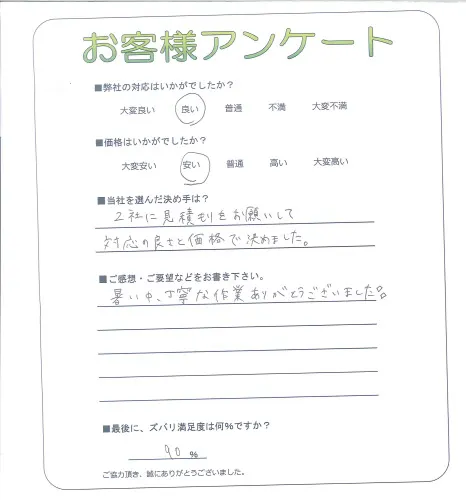 お客様アンケート
■弊社の対応はいかがでしたか?
大変良い 良い 普通 不満 大変不満
■価格はいかがでしたか?
大変安い 安い 普通 高い 大変高い
■当社を選んだ決め手は?
2社に見積もりをお願いして
対応の良さと価格で決めました。
■ご感想・ご要望などをお書き下さい。
暑い中、丁寧な作業ありがとうございました。
■最後に、ズバリ満足度は何%ですか?
90 %
ご協力頂き、誠にありがとうございました。